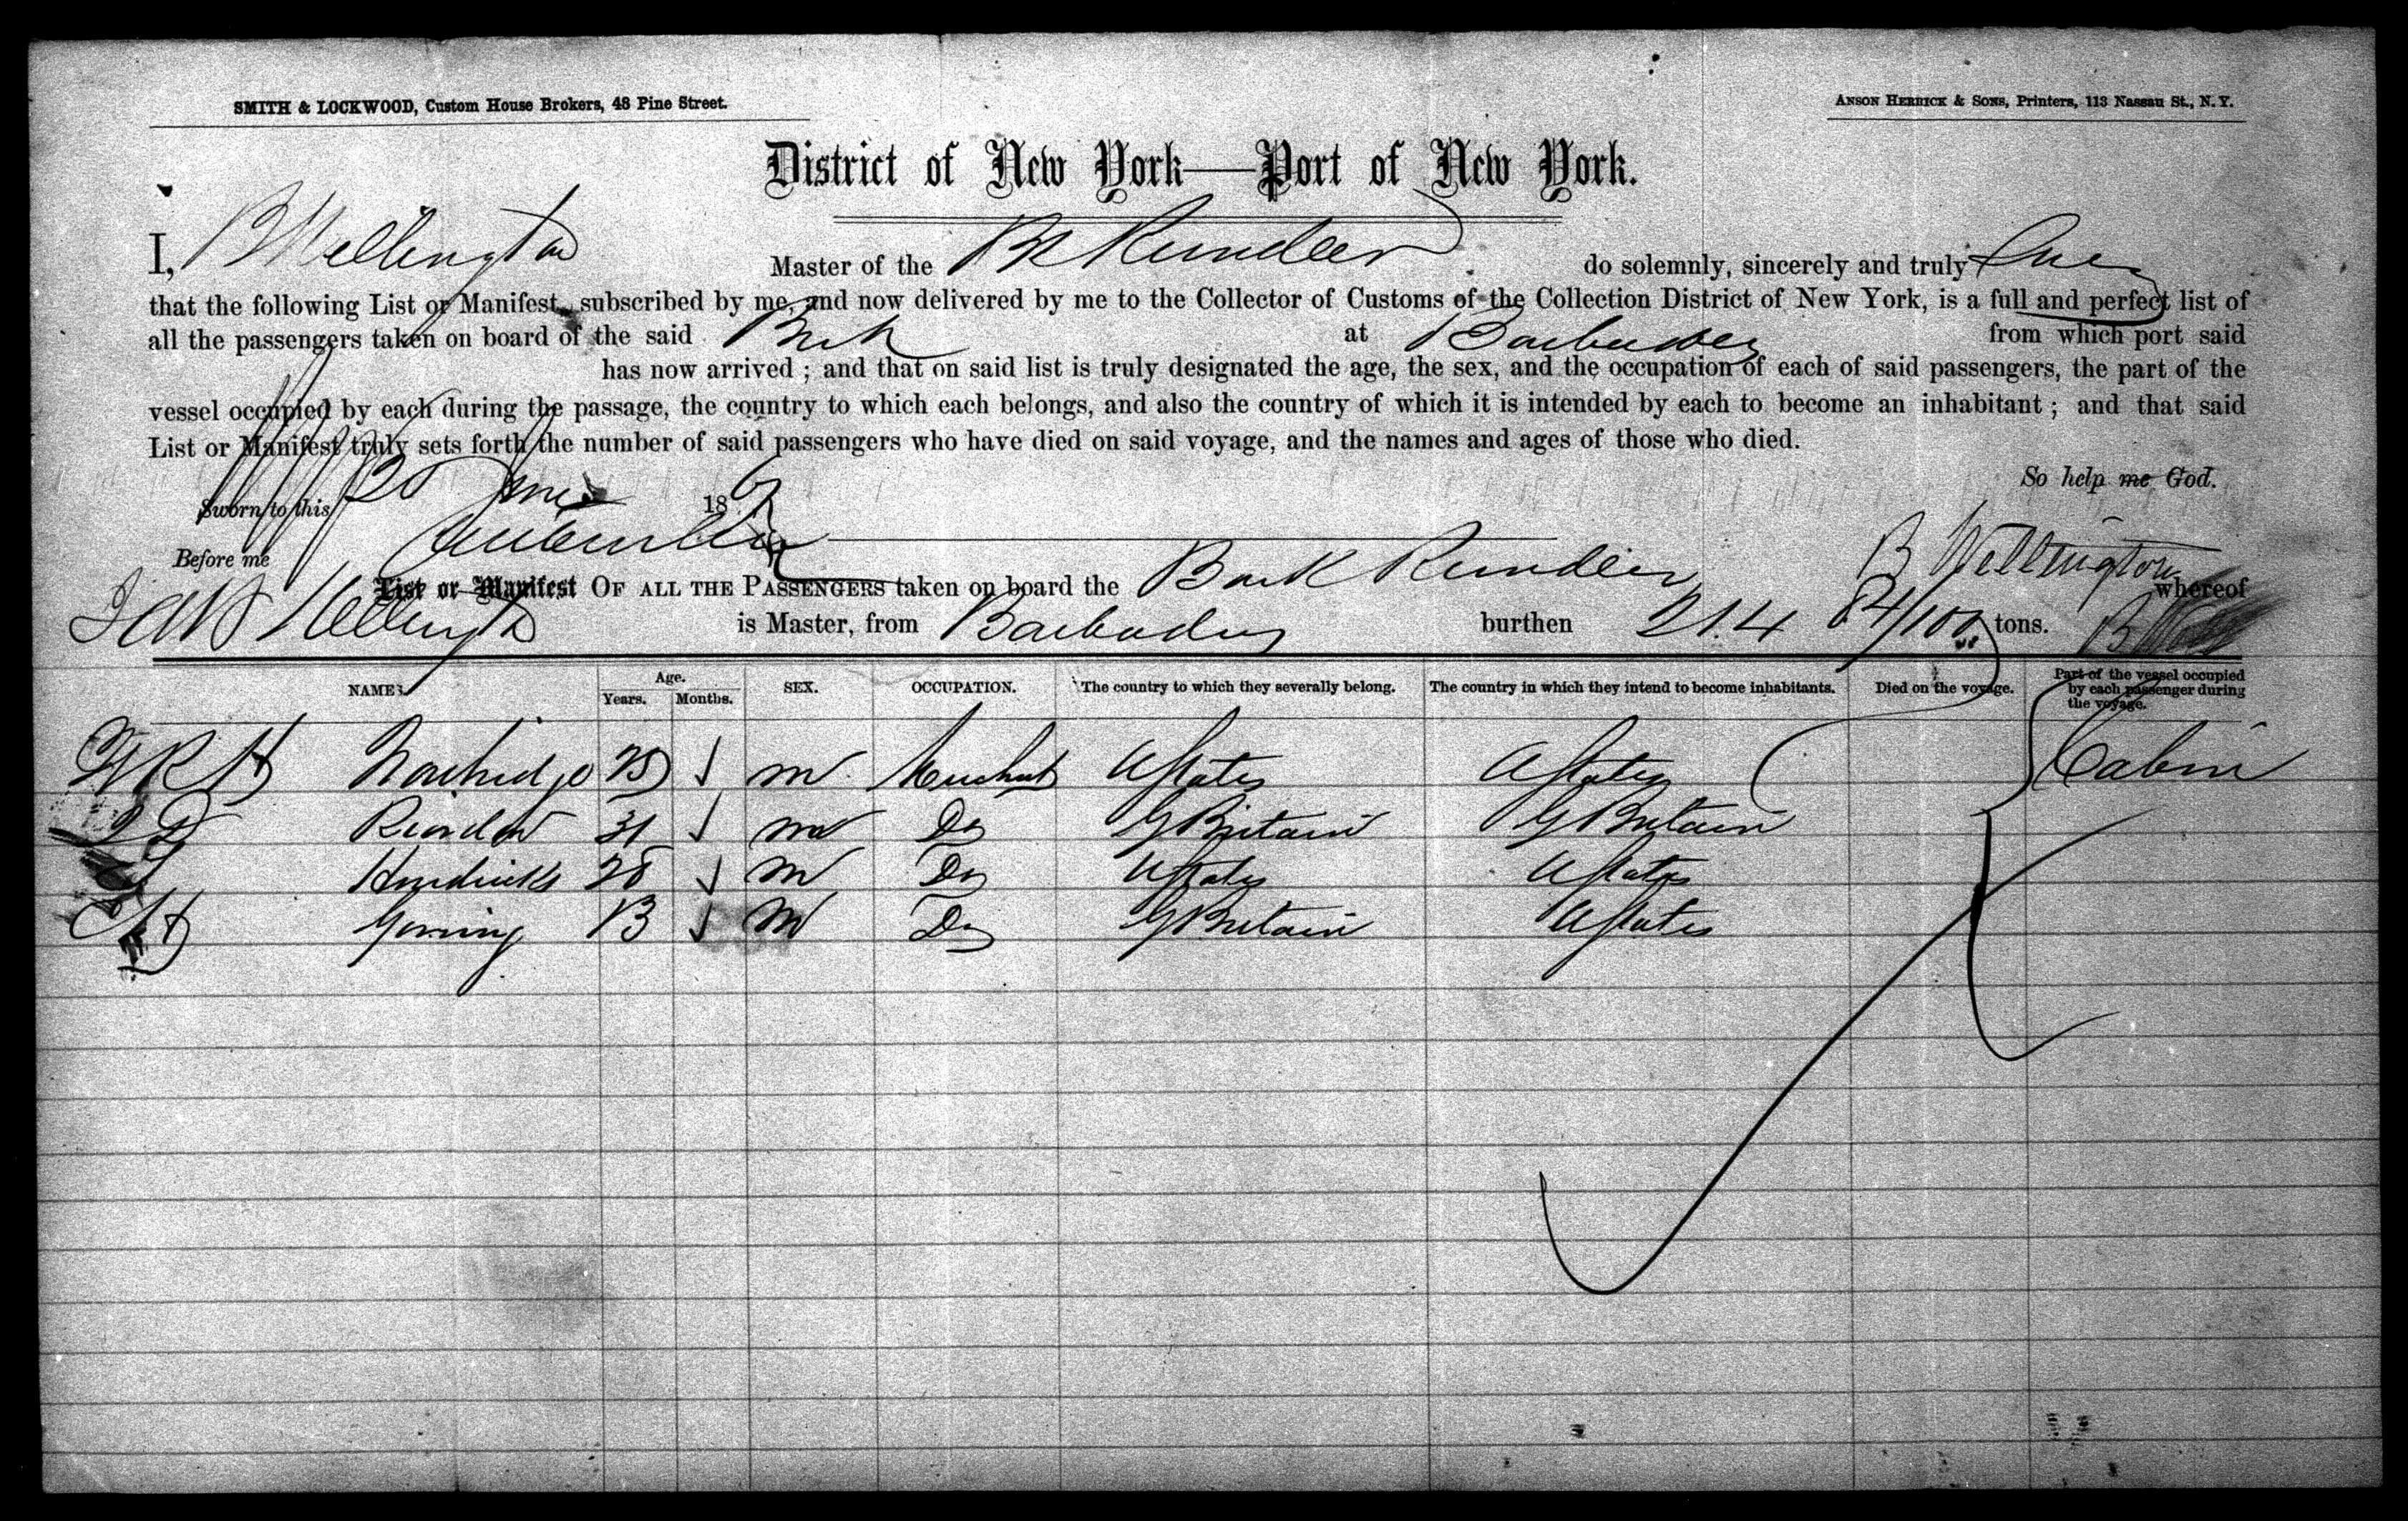 SMITH & LOCKWOOD, Custom House Brokers, 48 Pine Street.
ANSON HERRICK & SONS, Printers, 113 Nassau St., N. Y.
District of New York—Port of New York.
I, B Wellington Master of the Bk do solemnly, sincerely and truly
that the following List or Manifest, subscribed by me, and now delivered by me to the Collector of Customs of the Collection District of New York, is a full and perfect list of
all the passengers taken on board of the said Bark at Barbados from which port said
has now arrived ; and that on said list is truly designated the age, the sex, and the occupation of each of said passengers, the part of the
vessel occupied by each during the passage, the country to which each belongs, and also the country of which it is intended by each to become an inhabitant ; and that said
List or Manifest truly sets forth the number of said passengers who have died on said voyage, and the names and ages of those who died.
So help me God.
Sworn to this 20 June 186
Before me
B Wellington
List or Manifest OF ALL THE PASSENGERS taken on board the Bark whereof
is Master, from Barbados burthen 214 84/100 tons.
NAMES. Age. Years. Months. SEX. OCCUPATION. The country to which they severally belong. The country in which they intend to become inhabitants. Died on the voyage. Part of the vessel occupied by each passenger during the voyage.
m Merchant UStates UStates Cabin
31 m Do GBritain GBritain
Hendricks 28 m Do UStates UStates
m Do GBritain UStates